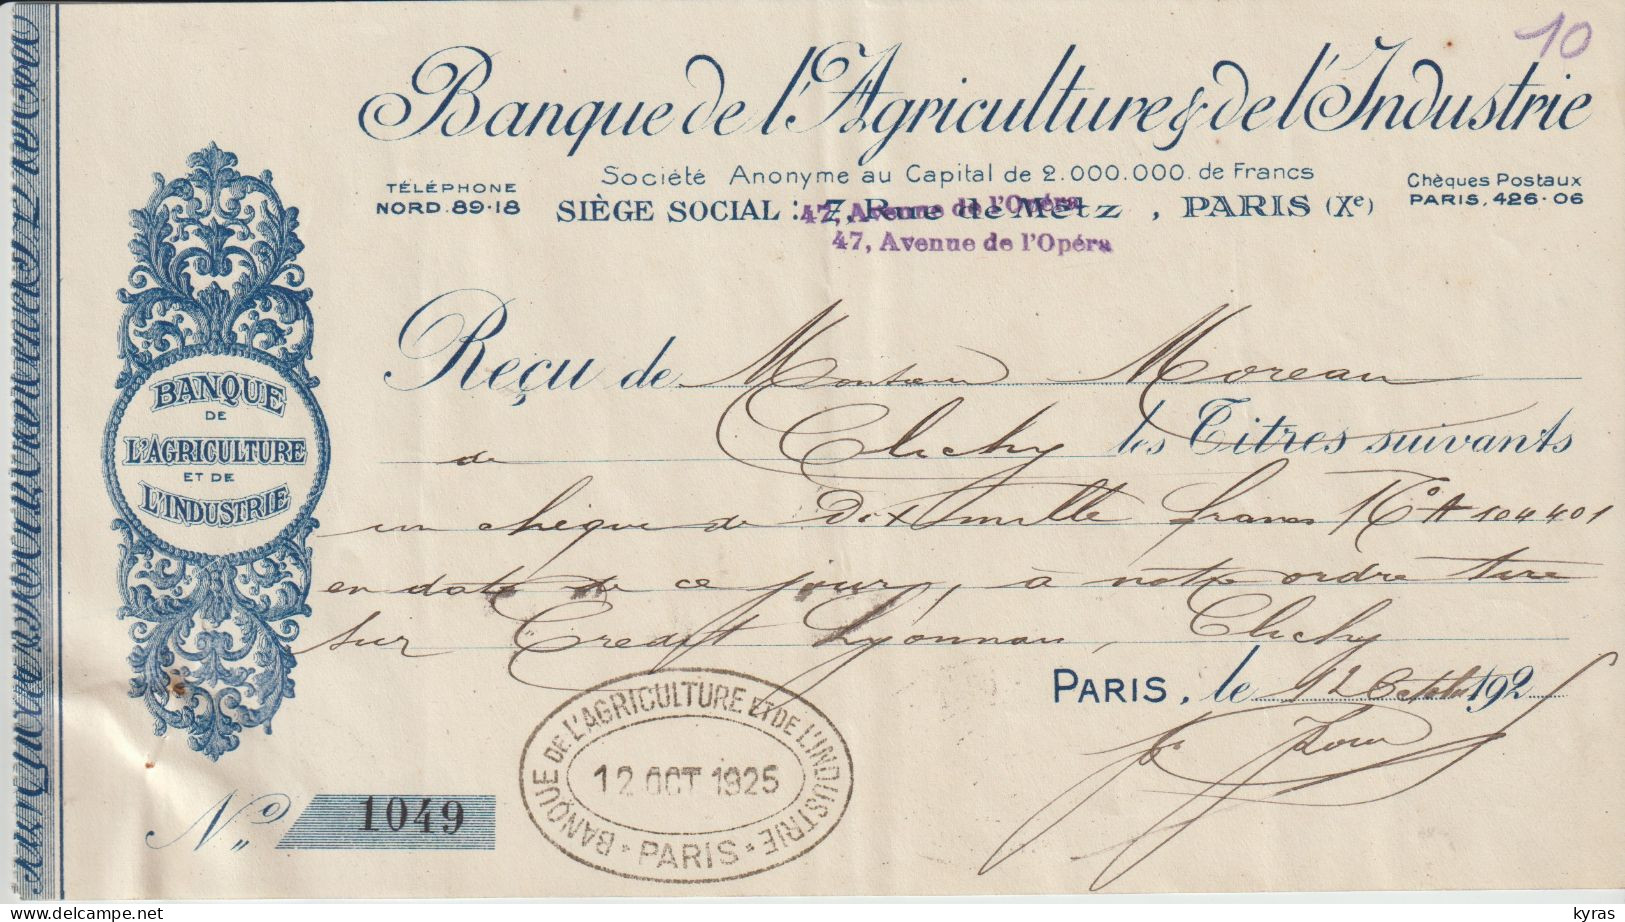 10
Banque de l'Agriculture & de l'Industrie
Société Anonyme au Capital de 2.000.000. de Francs
TÉLÉPHONE
NORD. 89-18
SIÈGE SOCIAL : 7, Rue de Metz , PARIS (Xe)
47, Avenue de l'Opéra
47, Avenue de l'Opéra
Chèques Postaux
PARIS, 426-06
BANQUE
DE
L'AGRICULTURE
ET DE
L'INDUSTRIE
Reçu de Monsieur Moreau
de Clichy les Titres suivants
un chèque de Dix mille francs No A 104401
en date de ce jour, à notre ordre tiré
sur Credit Lyonnais, Clichy
PARIS, le 12 Octobre 1925
BANQUE DE L'AGRICULTURE ET DE L'INDUSTRIE
12 OCT 1925
PARIS
No 1049
kyras
delcampe.net